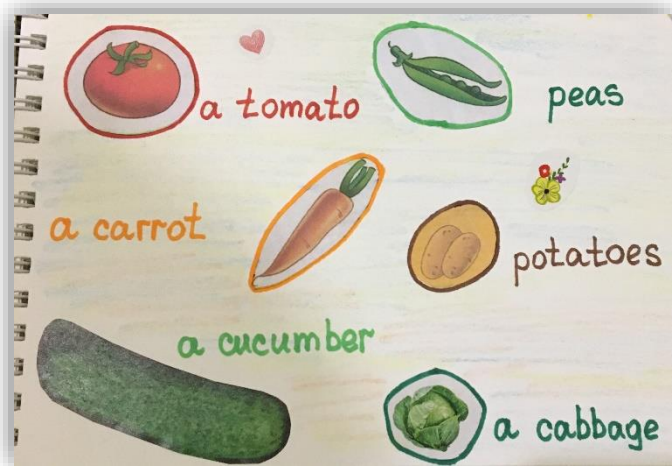 a tomato
peas
a carrot
potatoes
a cucumber
a cabbage